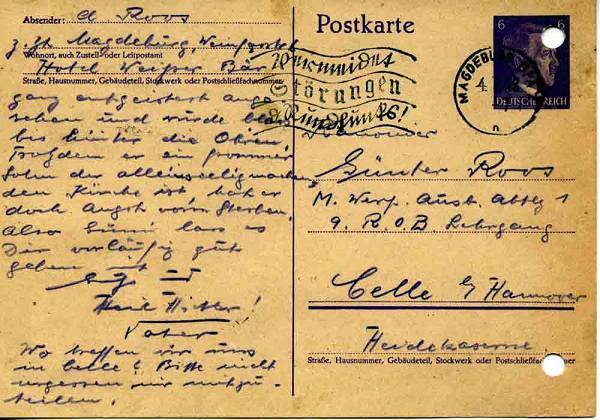 Absender: A Roos
z. Zt. Magdeburg,
Wohnort, auch Zustell- oder Leitpostamt
Hotel Weißer Bär
Straße, Hausnummer, Gebäudeteil, Stockwerk oder Postschließfachnummer
ganz entgeistert ange
sehen und wurde blass
bis hinter die Ohren.
Trotzdem er ein frommer
Sohn der alleinseeligmachen
den Kirche ist hat er
doch Angst vorm Sterben.
Also Günni lass es
Dir vorläufig gut
gehen mit
Heil Hitler!
Vater
Wo treffen wir uns
in Celle? Bitte nicht
vergessen mir mitzu-
teilen.
Postkarte
6 6
DEUTSCHES REICH
MAGDEBURG
Vermeidet
Störungen
Rundfunks!
Günter Roos
M. Werf. Ausb. Abtlg 1
9. R.O.B. Lehrgang
Celle b/ Hannover
Heidekaserne
Straße, Hausnummer, Gebäudeteil, Stockwerk oder Postschließfachnummer